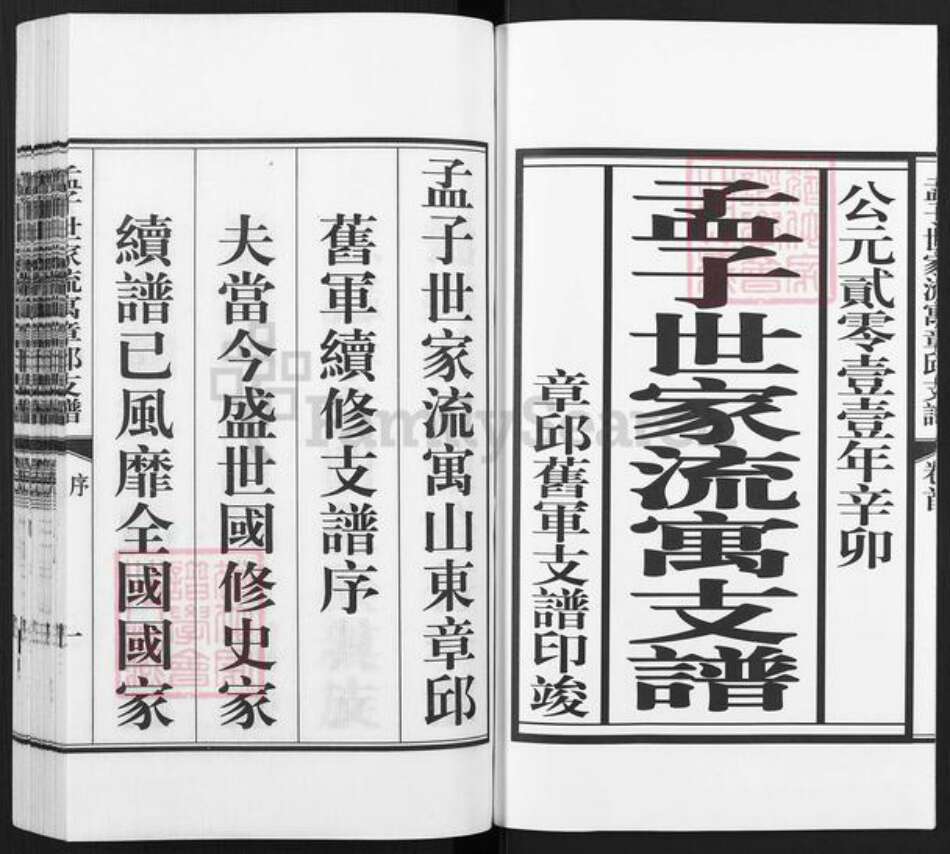 孟子世家流寓章邱支譜
卷首
公元貳零壹壹年辛卯
孟子世家流寓支譜
章邱舊軍支譜印竣
孟子世家流寓山東章邱
舊軍續修支譜序
夫當今盛世國修史家
續譜已風靡全國國家
孟子世家流寓章邱支譜
序
一
FamilySearch